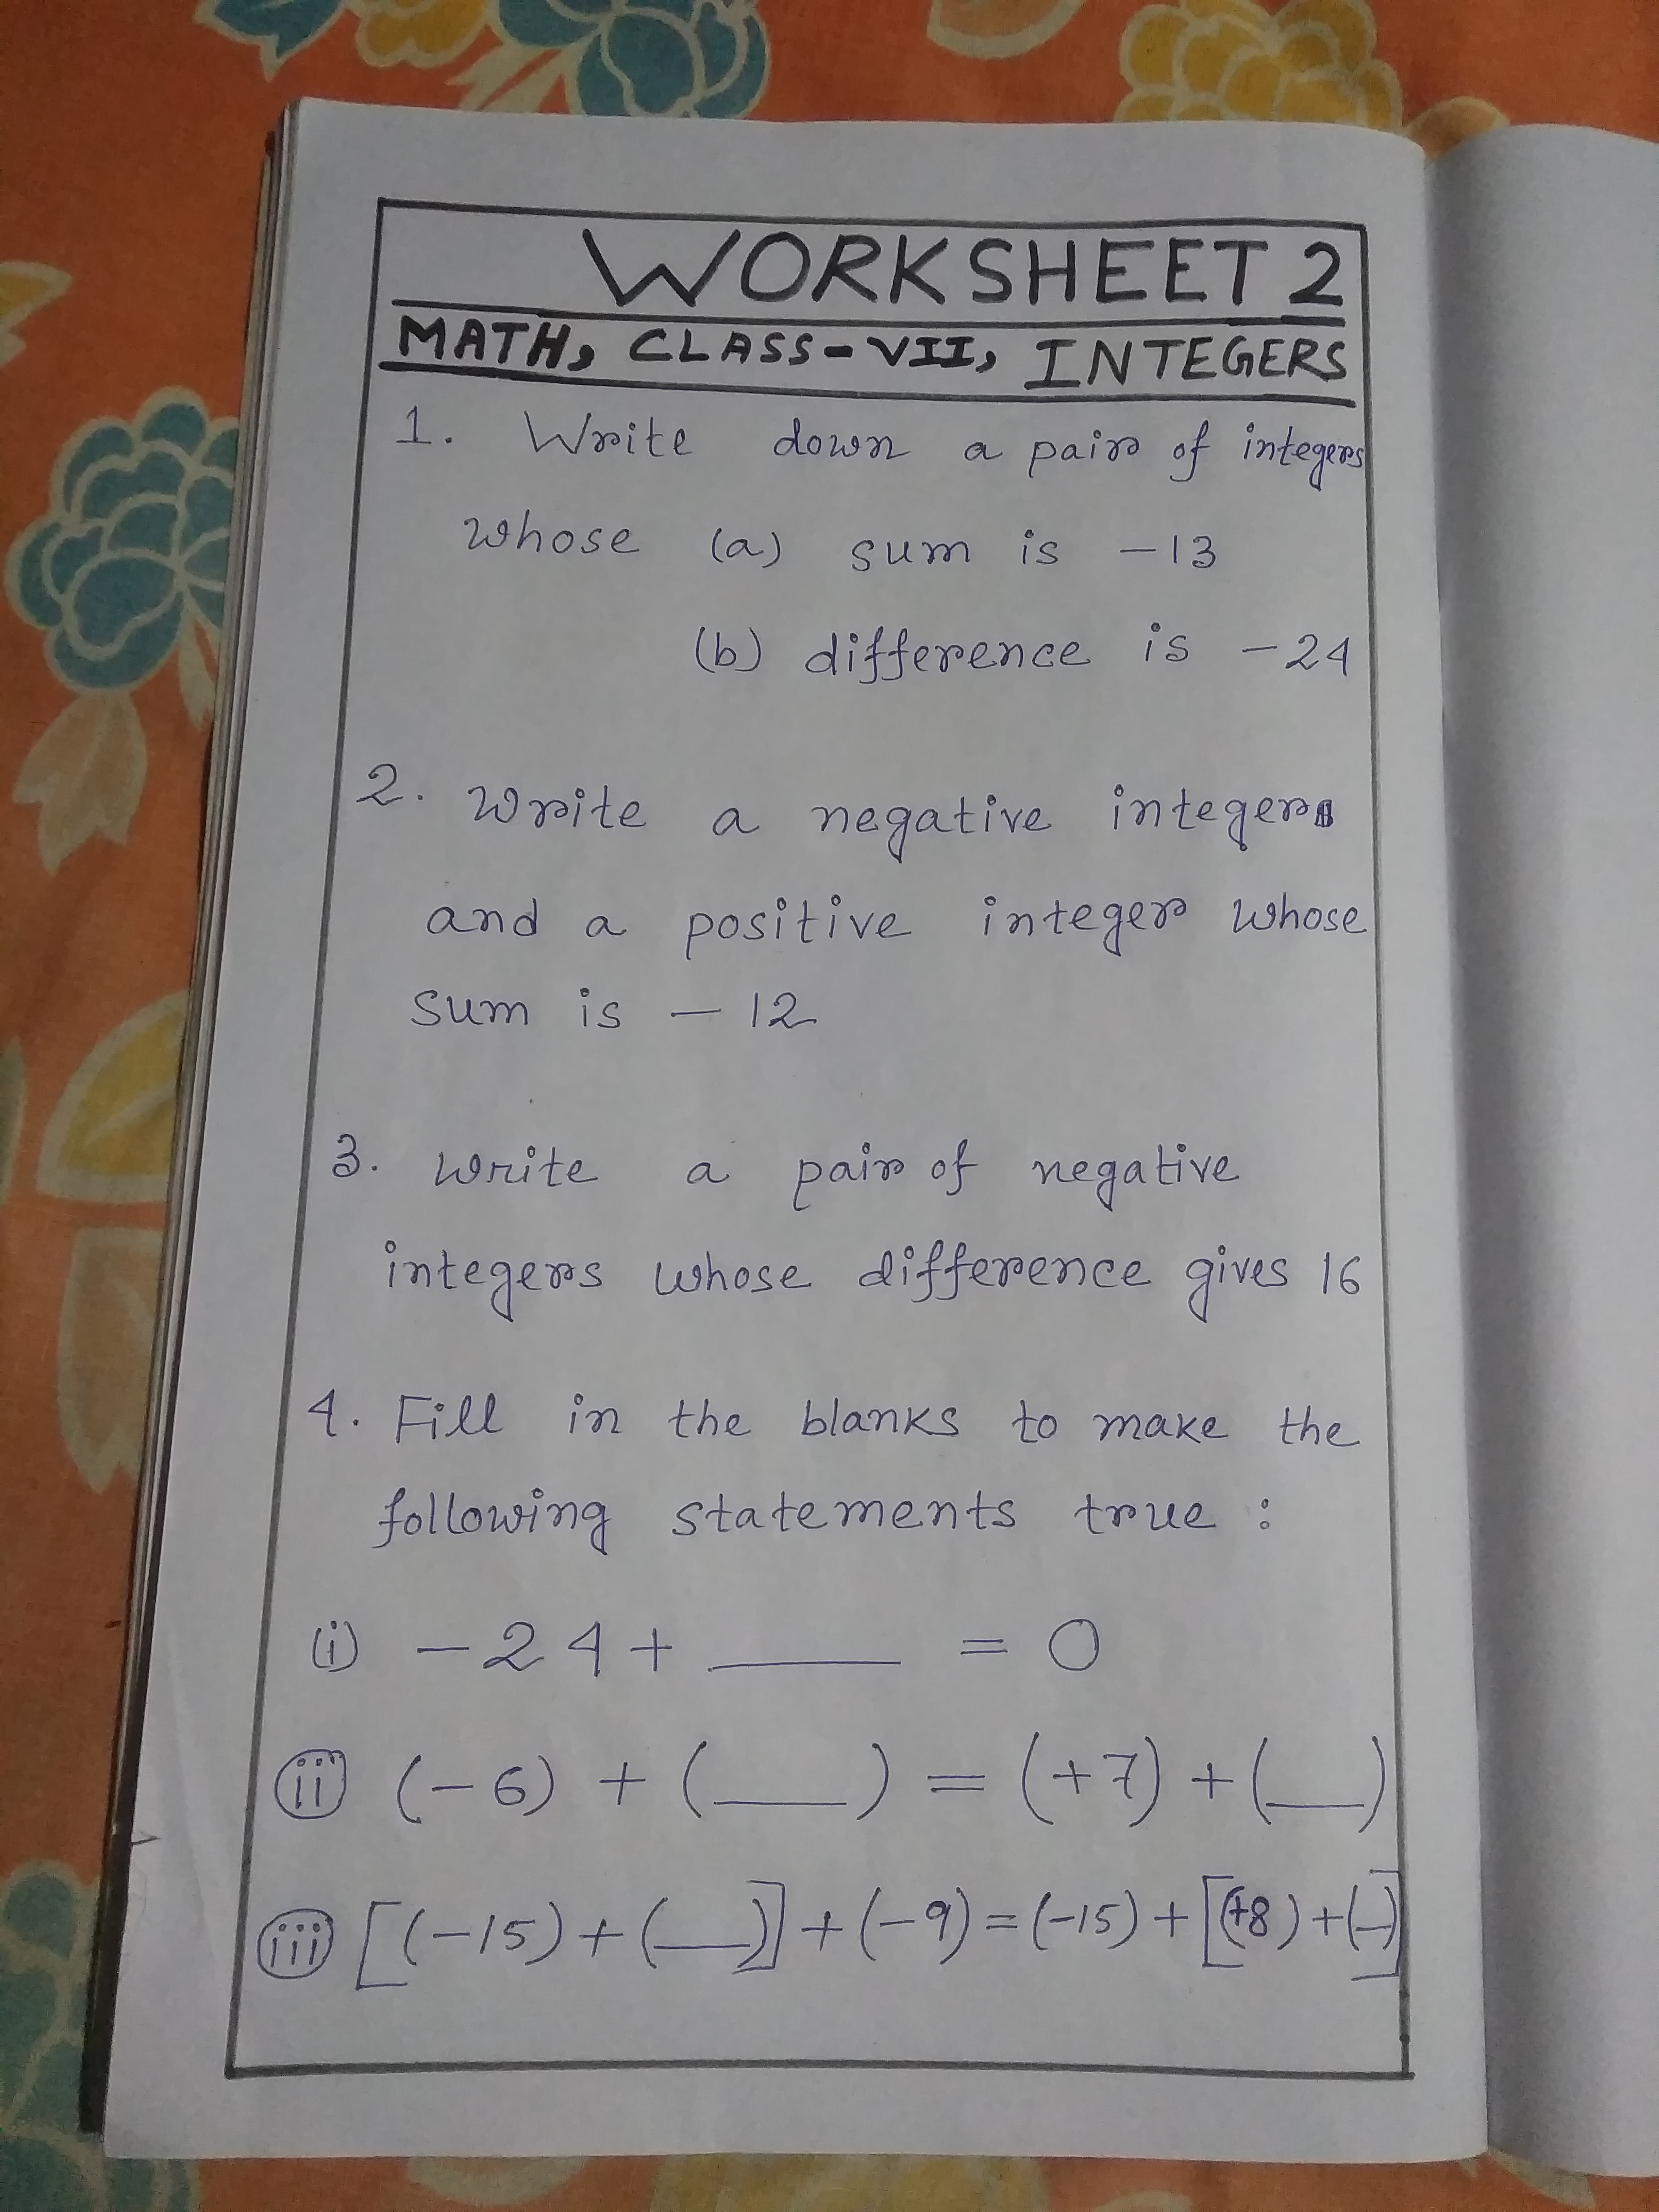 WORKSHEET 2
MATH, CLASS-VII, INTEGERS
1. Write down a pair of integers
whose (a) sum is -13
(b) difference is -24
2. Write a negative integer
and a positive integer whose
sum is - 12
3. Write a pair of negative
integers whose difference gives 16
4. Fill in the blanks to make the
following statements true :
(i) - 24 + ____ = 0
(ii) (-6) + (____) = (+7) + (___)
(iii) [(-15) + (___)] + (-9) = (-15) + [(+8) + (_)]